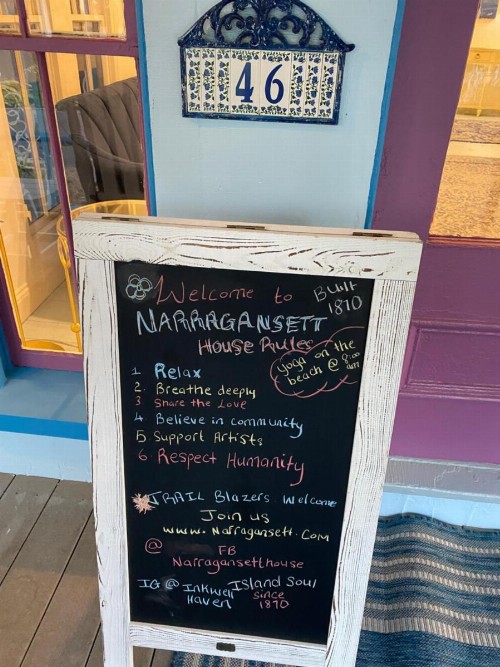 46
Welcome to
Built
1870
NARRAGANSETT
House Rules
yoga on the
beach @ 8:00
am
1 Relax
2. Breathe deeply
3 Share the Love
4 Believe in community
5 Support Artists
6. Respect Humanity
TRAIL Blazers Welcome
Join us
www.Narragansett.Com
@ FB
Narragansetthouse
IG @ Inkwell
Haven
Island Soul
since
1870